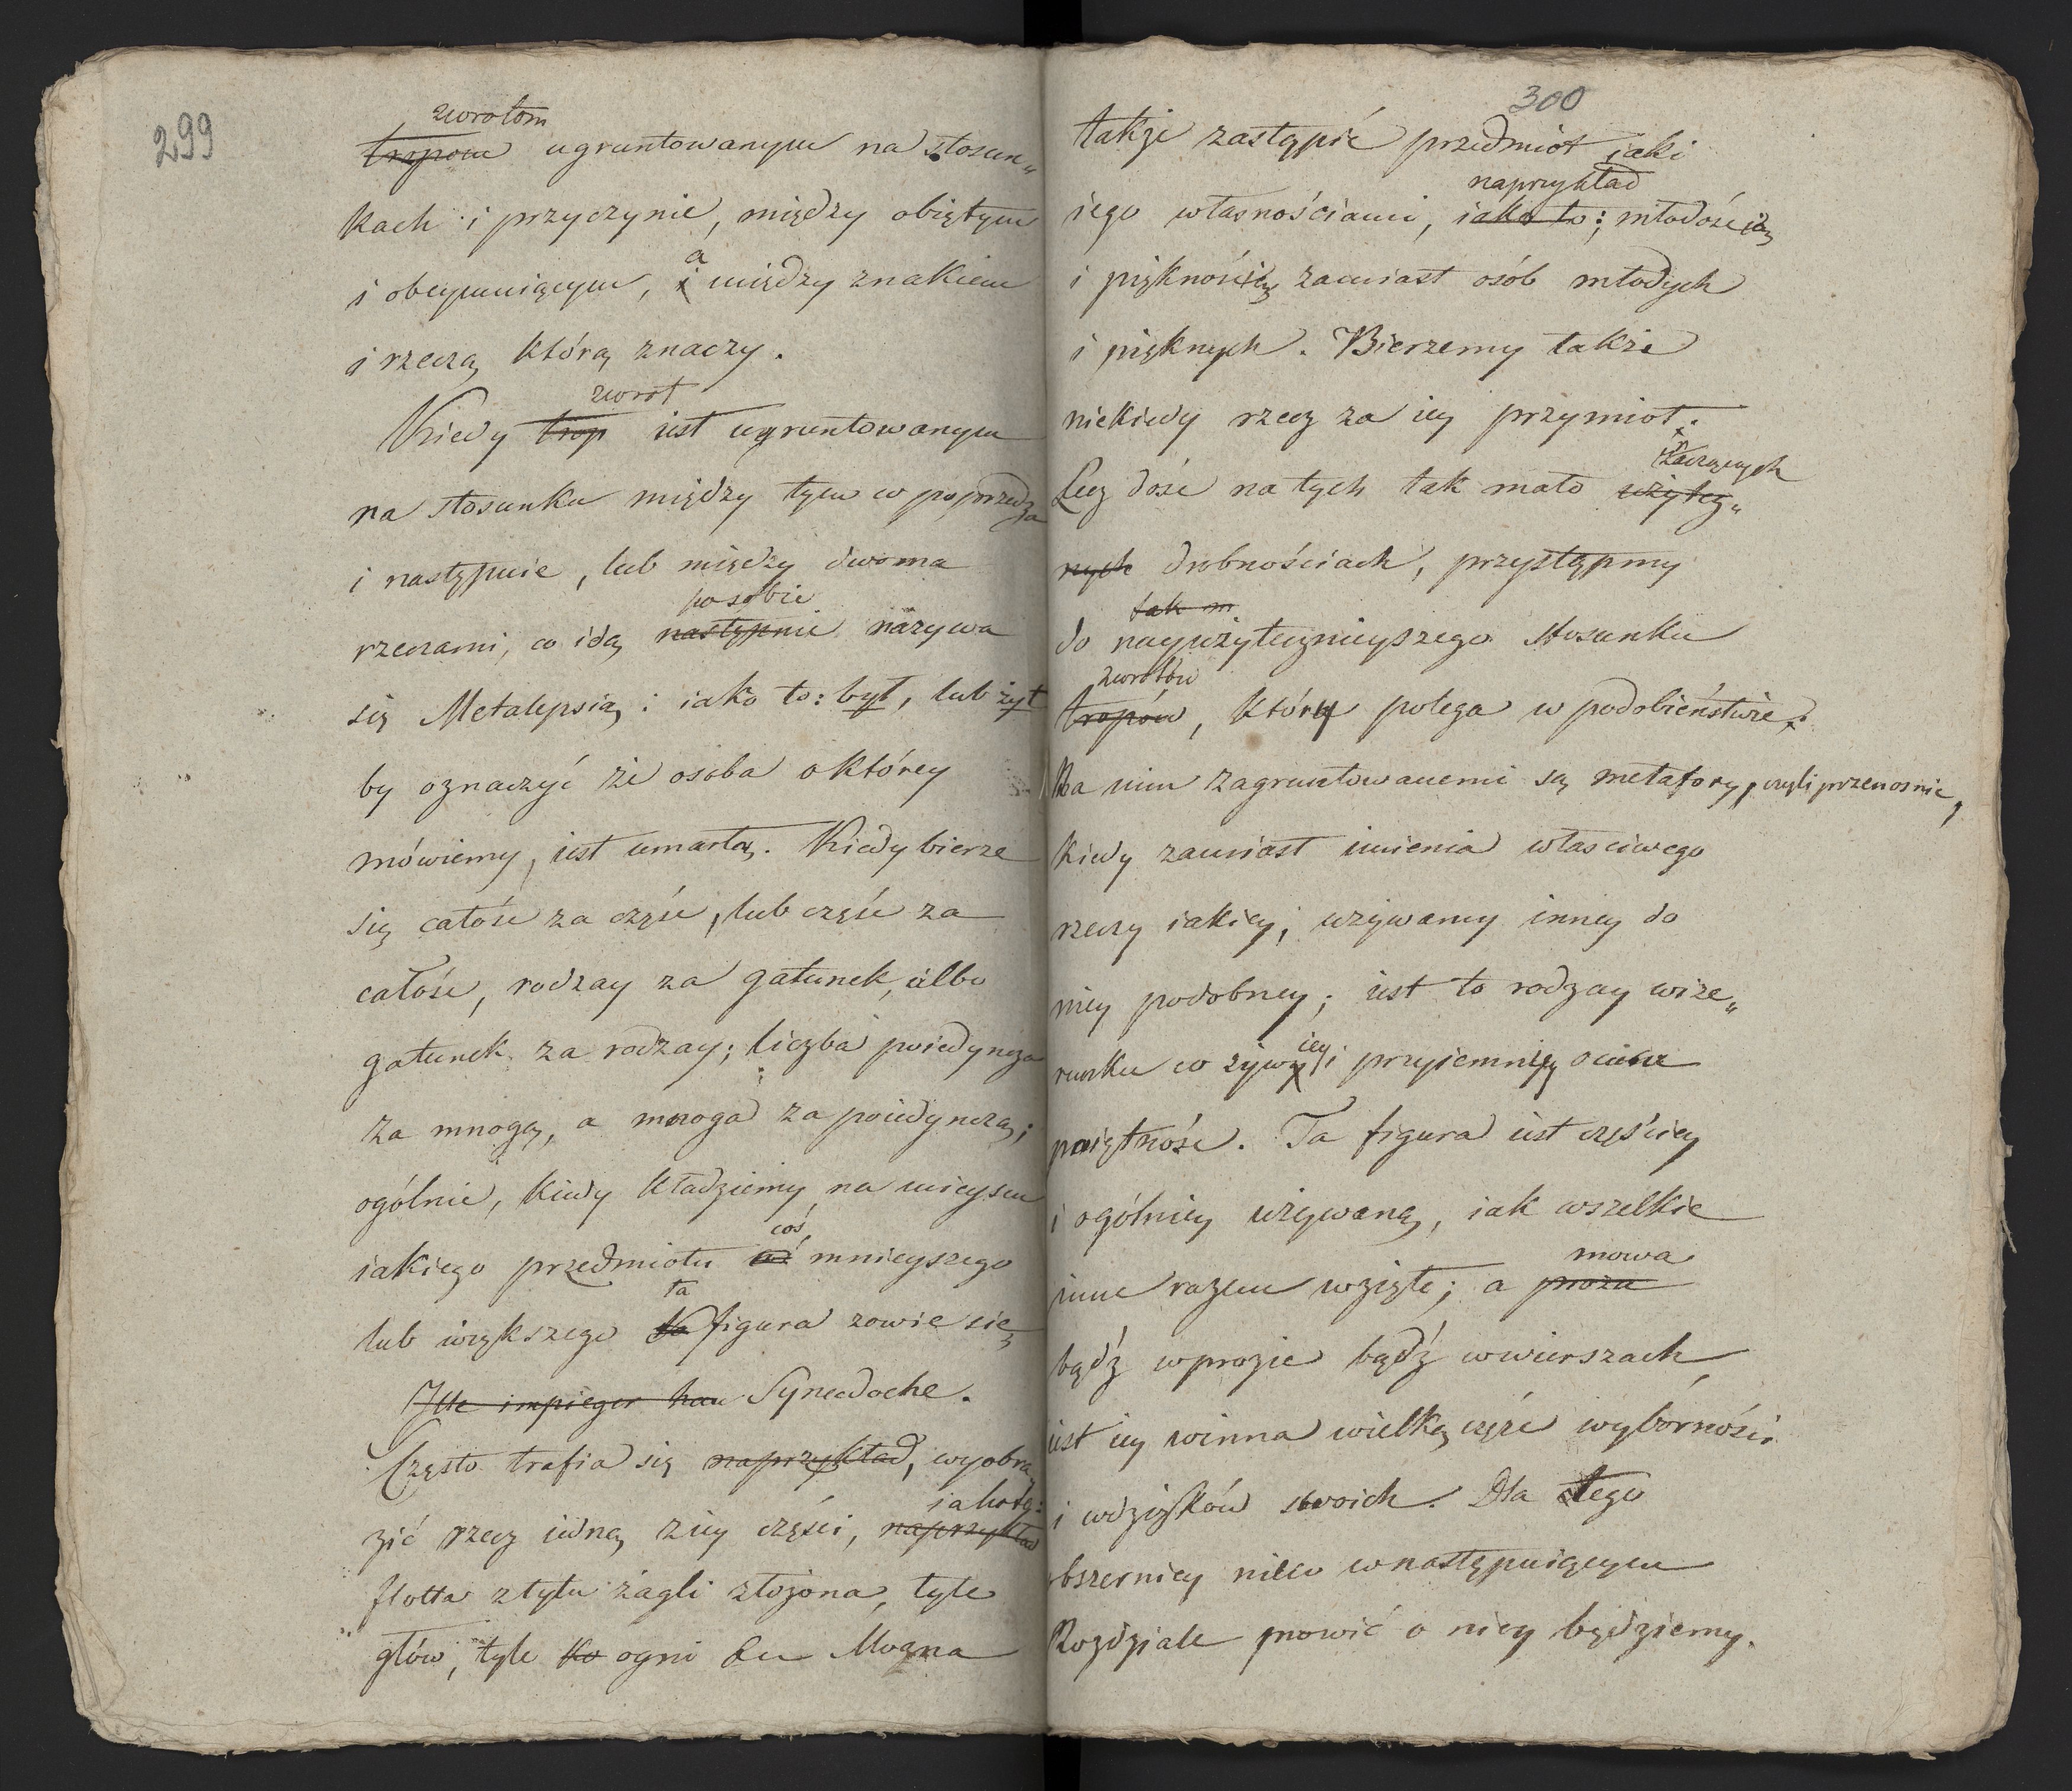 299
zwrotom
tropom ugruntowanym na stosun„
kach i przyczynie, między obiętym
a
i obeymuiącym, i między znakiem
i rzeczą którą znaczy.
zwrot
Kiedy trop iest ugruntowanym
na stosunku między tym co poprzedza
i następuie, lub między dwoma
po sobie
rzeczami, co idą następnie nazywa
się Metalepsią; iako to: był, lub żył
by oznaczyć że osoba o którey
mówiemy, iest umarłą. Kiedy bierze
się całość za część, lub część za
całość, rodzay za gatunek, albo
gatunek za rodzay; liczba poiedyncza
za mnogą, a mnoga za poiedynczą;
ogólnie, kiedy kładziemy na mieyscu
coś,
iakiego przedmiotu coś mnieyszego
ta
lub większego ta figura zowie się
Ille impiger hau Synecdoche.
Często trafia się naprzykład, wyobra„
iako to:
zić rzecz iedną z iey części, naprzykład
flotta z tylu żagli złożona, tyle
głów, tyle ko ogni &c Można
300
także zastąpić przedmiot iaki
naprzykład
iego własnościami, iako to; młodością
i pięknością zamiast osób młodych
i pięknych. Bierzemy także
niekiedy rzecz za iey przymiot.
znaczących
Lecz dość na tych tak mało użytecz„
nych drobnościach, przystąpmy
tak m
do nayużytecznieyszego stosunku
zwrotów
tropów, który polega w podobieństwie.
Na nim zagruntowanemi są metafory, czyli przenosnie,
kiedy zamiast imienia własciwego
rzeczy iakiey, używamy inney do
niey podobney; iest to rodzay wize„
iey
runku co żywy i przyiemniey ocienie
pniętność. Ta figura iest częściey
i ogólniey używaną, iak wszelkie
mowa
inne razem wzięte; a proza
bądź w prozie bądź w wierszach
iest iey winna wielką część wyborności
i wdzięków swoich. Dla tego
obszerniey nieco w następuiącym
Rozdziale mowić o niey będziemy.